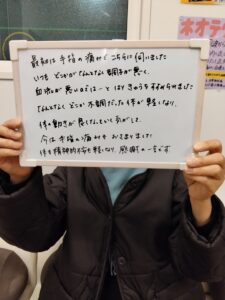 最初は手指の痛みでこちらに伺いました
いつも どこかがなんとなく調子が悪く、
血流が悪い
はりきゅうをすすめられました
なんとなく どこか不調だった体が軽くなり、
体の動きが良くなったいい気がして、
今は手指の痛みもおさまりました
体も精神的不安も軽くなり 感謝の一言です
ネオテ